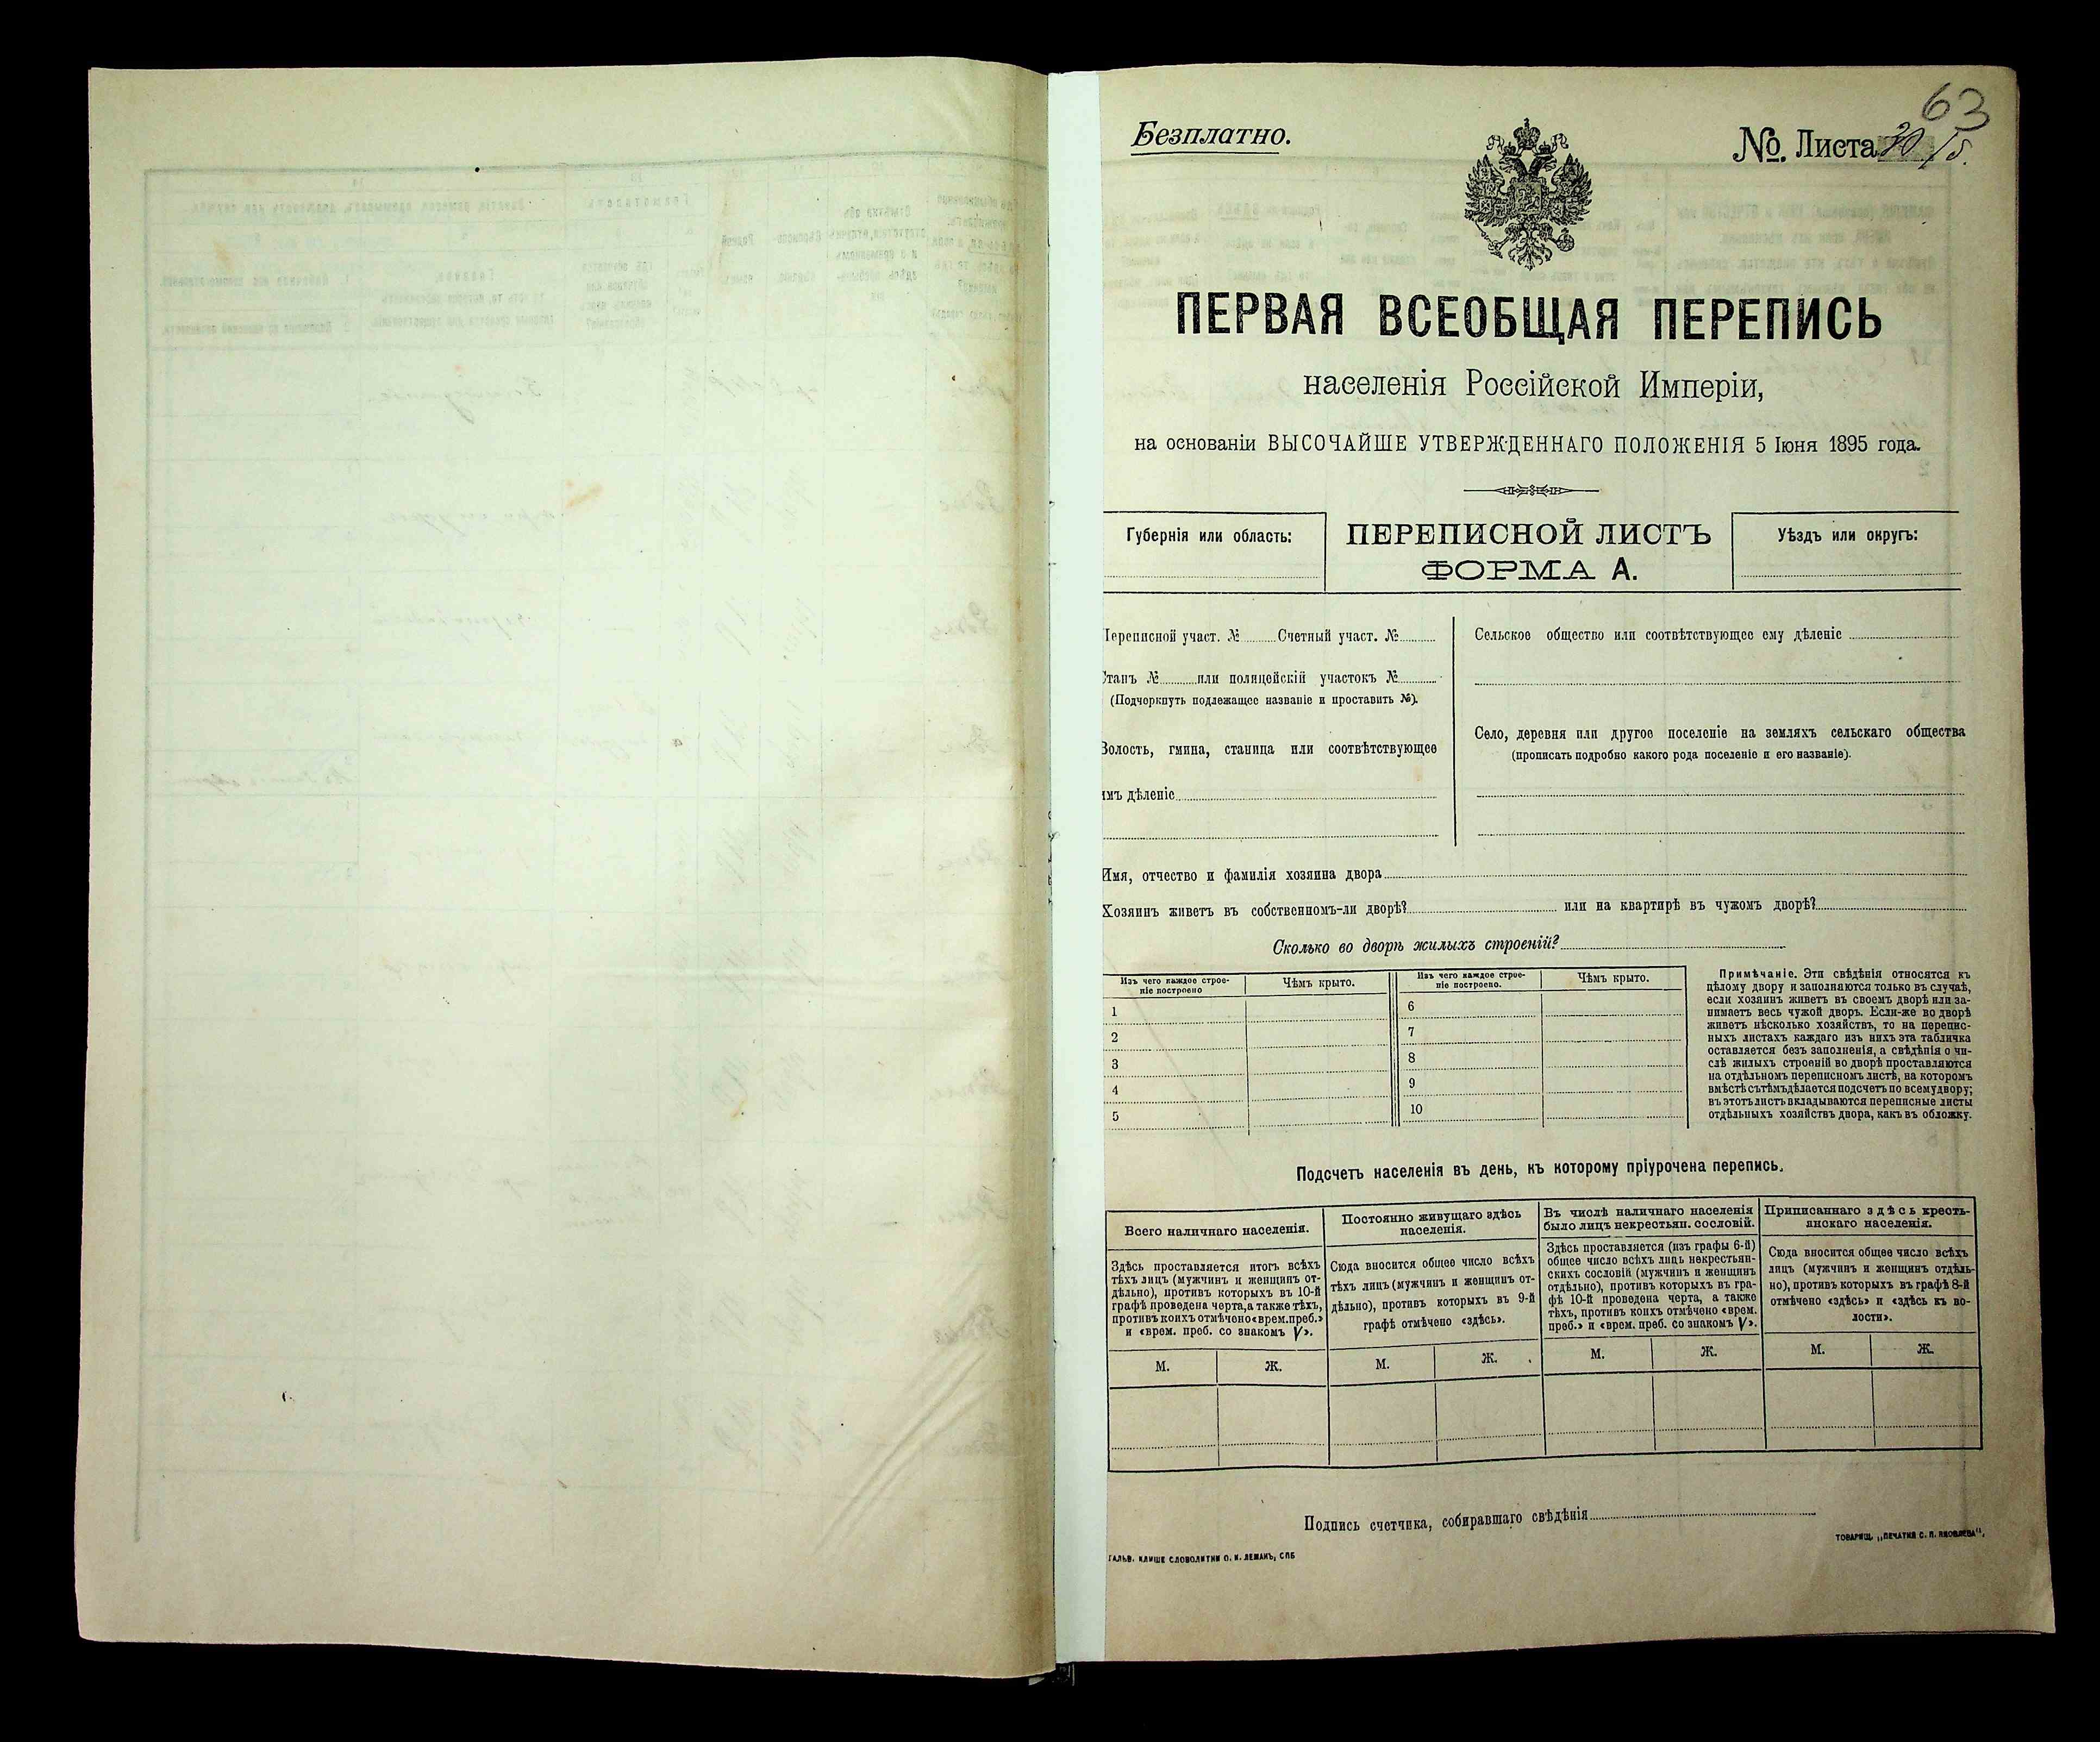 63
Безплатно.
№. Листа
ПЕРВАЯ ВСЕОБЩАЯ ПЕРЕПИСЬ
населенія Россійской Имперіи,
на основаніи ВЫСОЧАЙШЕ УТВЕРЖДЕННАГО ПОЛОЖЕНІЯ 5 Іюня 1895 года.
Губернія или область:
ПЕРЕПИСНОЙ ЛИСТЪ
ФОРМА А.
Уѣздъ или округъ:
Переписной участ. № Счетный участ. №
Станъ № или полицейскій участокъ №
(Подчоркнуть подлежащее названіе и проставить №).
Волость, гмина, станица или соотвѣтствующее
имъ дѣленіе
Сельское общество или соотвѣтствующее ему дѣленіе
Село, деревня или другое поселеніе на земляхъ сельскаго общества
(прописать подробно какого рода поселеніе и его названіе).
Имя, отчество и фамилія хозяина двора
Хозяинъ живетъ въ собственномъ-ли дворѣ? или на квартирѣ въ чужомъ дворѣ?
Сколько во дворѣ жилыхъ строеній?
Изъ чего каждое строе-
ніе построено
Чѣмъ крыто.
1
2
3
4
5
Изъ чего каждое строе-
ніе построено.
Чѣмъ крыто.
6
7
8
9
10
Примѣчаніе. Эти свѣдѣнія относятся къ
цѣлому двору и заполняются только въ случаѣ,
если хозяинъ живетъ въ своемъ дворѣ или за-
нимаетъ весь чужой дворъ. Если-же во дворѣ
живетъ нѣсколько хозяйствъ, то на перепис-
ныхъ листахъ каждаго изъ нихъ эта табличка
оставляется безъ заполненія, а свѣдѣнія о чи-
слѣ жилыхъ строеній во дворѣ проставляются
на отдѣльномъ переписномъ листѣ, на которомъ
вмѣстѣ съ тѣмъ дѣлается подсчетъ по всему двору;
въ этотъ листъ вкладываются переписные листы
отдѣльныхъ хозяйствъ двора, какъ въ обложку.
Подсчетъ населенія въ день, къ которому пріурочена перепись.
Всего наличнаго населенія.
Здѣсь проставляется итогъ всѣхъ
тѣхъ лицъ (мужчинъ и женщинъ от-
дѣльно), противъ которыхъ въ 10-й
графѣ проведена черта, а также тѣхъ,
противъ коихъ отмѣчено «врем. преб.»
и «врем. преб. со знакомъ V».
М. Ж.
Постоянно живущаго здѣсь
населенія.
Сюда вносится общее число всѣхъ
тѣхъ лицъ (мужчинъ и женщинъ от-
дѣльно), противъ которыхъ въ 9-й
графѣ отмѣчено «здѣсь».
М. Ж.
Въ числѣ наличнаго населенія
было лицъ некрестьян. сословій.
Здѣсь проставляется (изъ графы 6-й)
общее число всѣхъ лицъ некрестьян-
скихъ сословій (мужчинъ и женщинъ
отдѣльно), противъ которыхъ въ гра-
фѣ 10-й проведена черта, а также
тѣхъ, противъ коихъ отмѣчено «врем.
преб.» и «врем. преб. со знакомъ V».
М. Ж.
Приписаннаго здѣсь кресть-
янскаго населенія.
Сюда вносится общее число всѣхъ
лицъ (мужчинъ и женщинъ отдѣль-
но), противъ которыхъ въ графѣ 8-й
отмѣчено «здѣсь» и «здѣсь къ во-
лости».
М. Ж.
Подпись счетчика, собиравшаго свѣдѣнія
ГАЛЬВ. КЛИШЕ СЛОВОЛИТНИ О. И. ЛЕМАНЪ, СПБ
ТОВАРИЩ. „ПЕЧАТНЯ С. П. ЯКОВЛЕВА“.